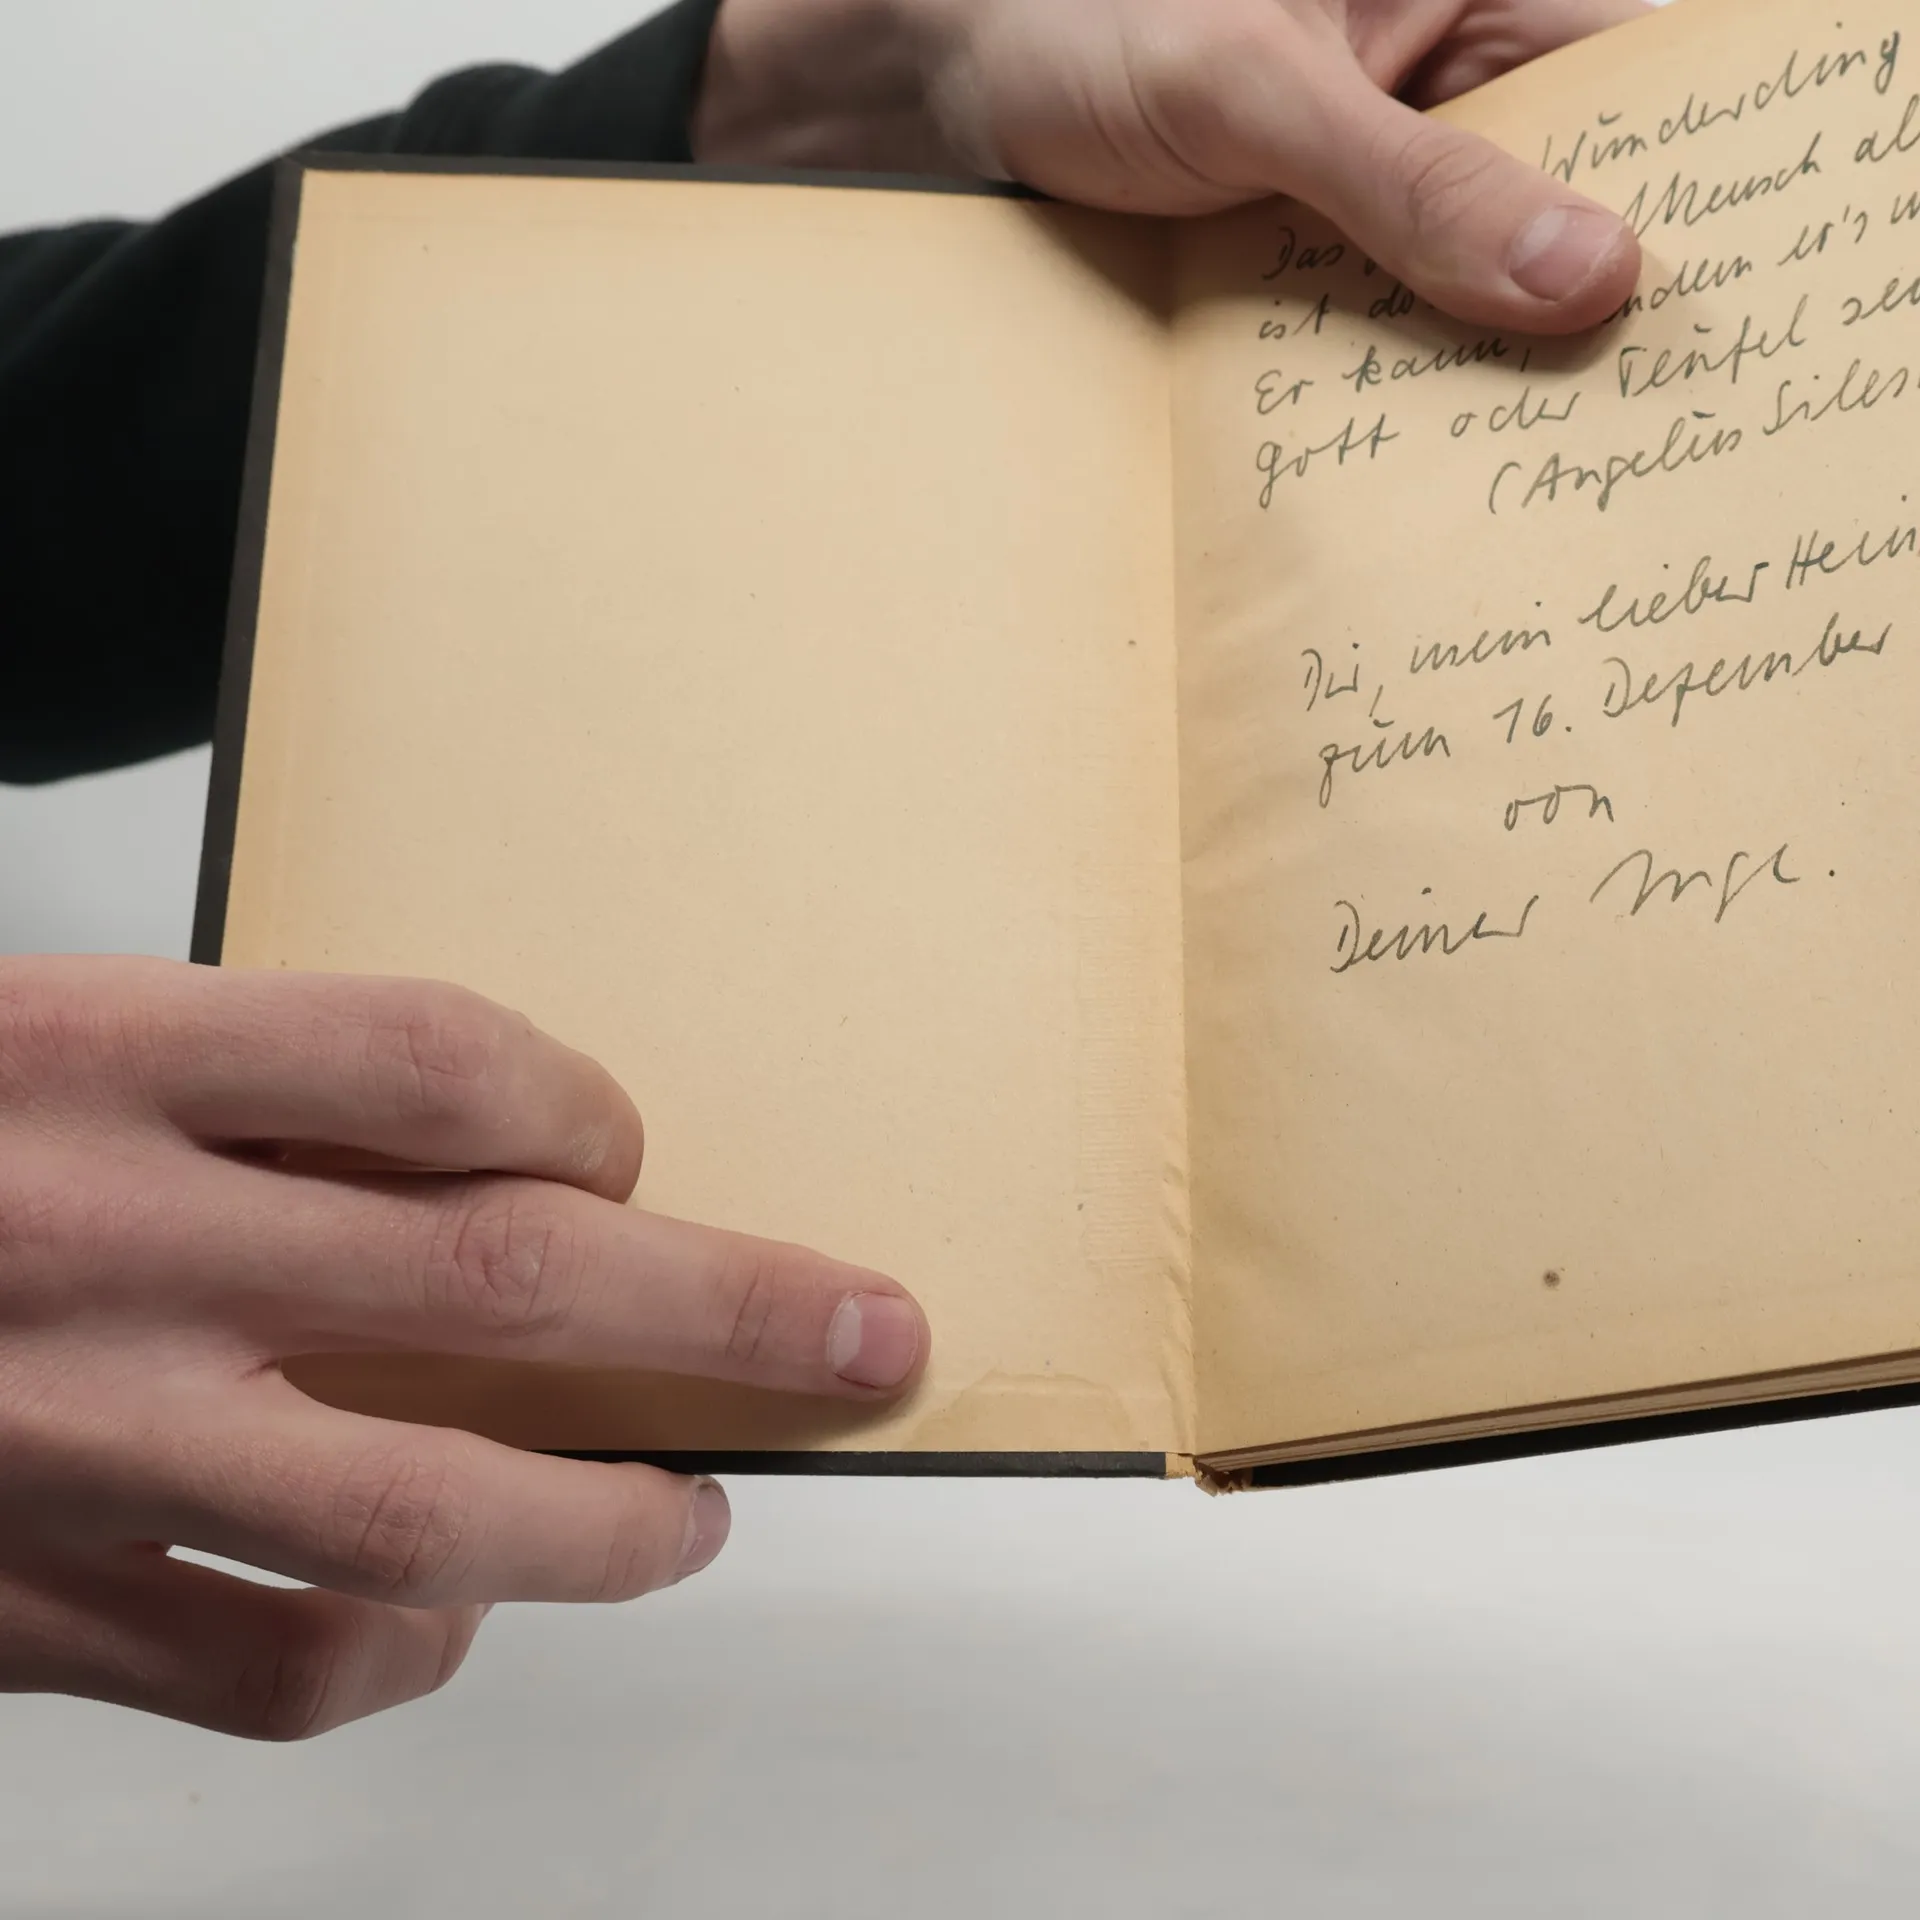 Wunderding
Das Mensch al
ist do
Er kann, ndem er's
Gott oder Teufel sei
(Angelus Siles
Dir, mein lieber Hein
zum 16. Dezember
von
Deiner Inge.